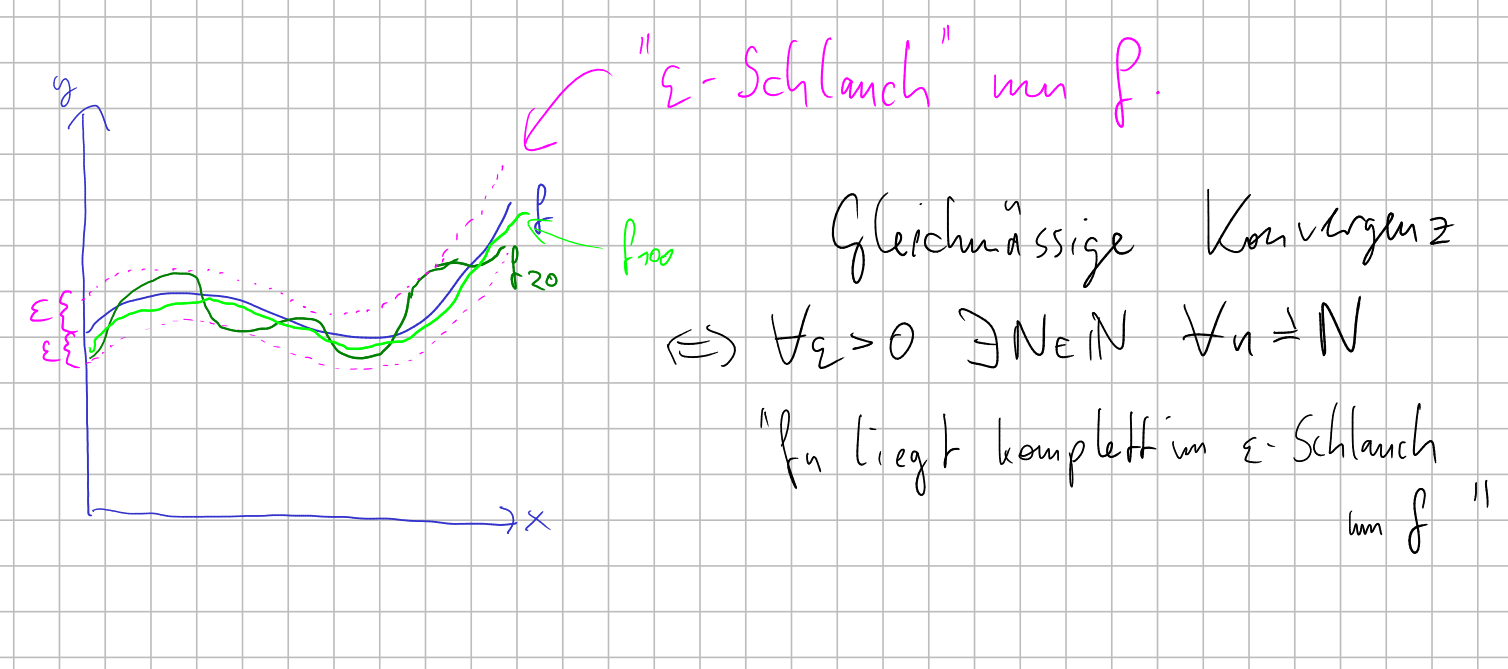 "ε-Schlauch" um f.
y
f
f₁₀₀
f₂₀
ε{
ε{
x
Gleichmässige Konvergenz
⇔ ∀ε>0 ∃N∈ℕ ∀n≥N
"fn liegt komplett im ε-Schlauch
um f"